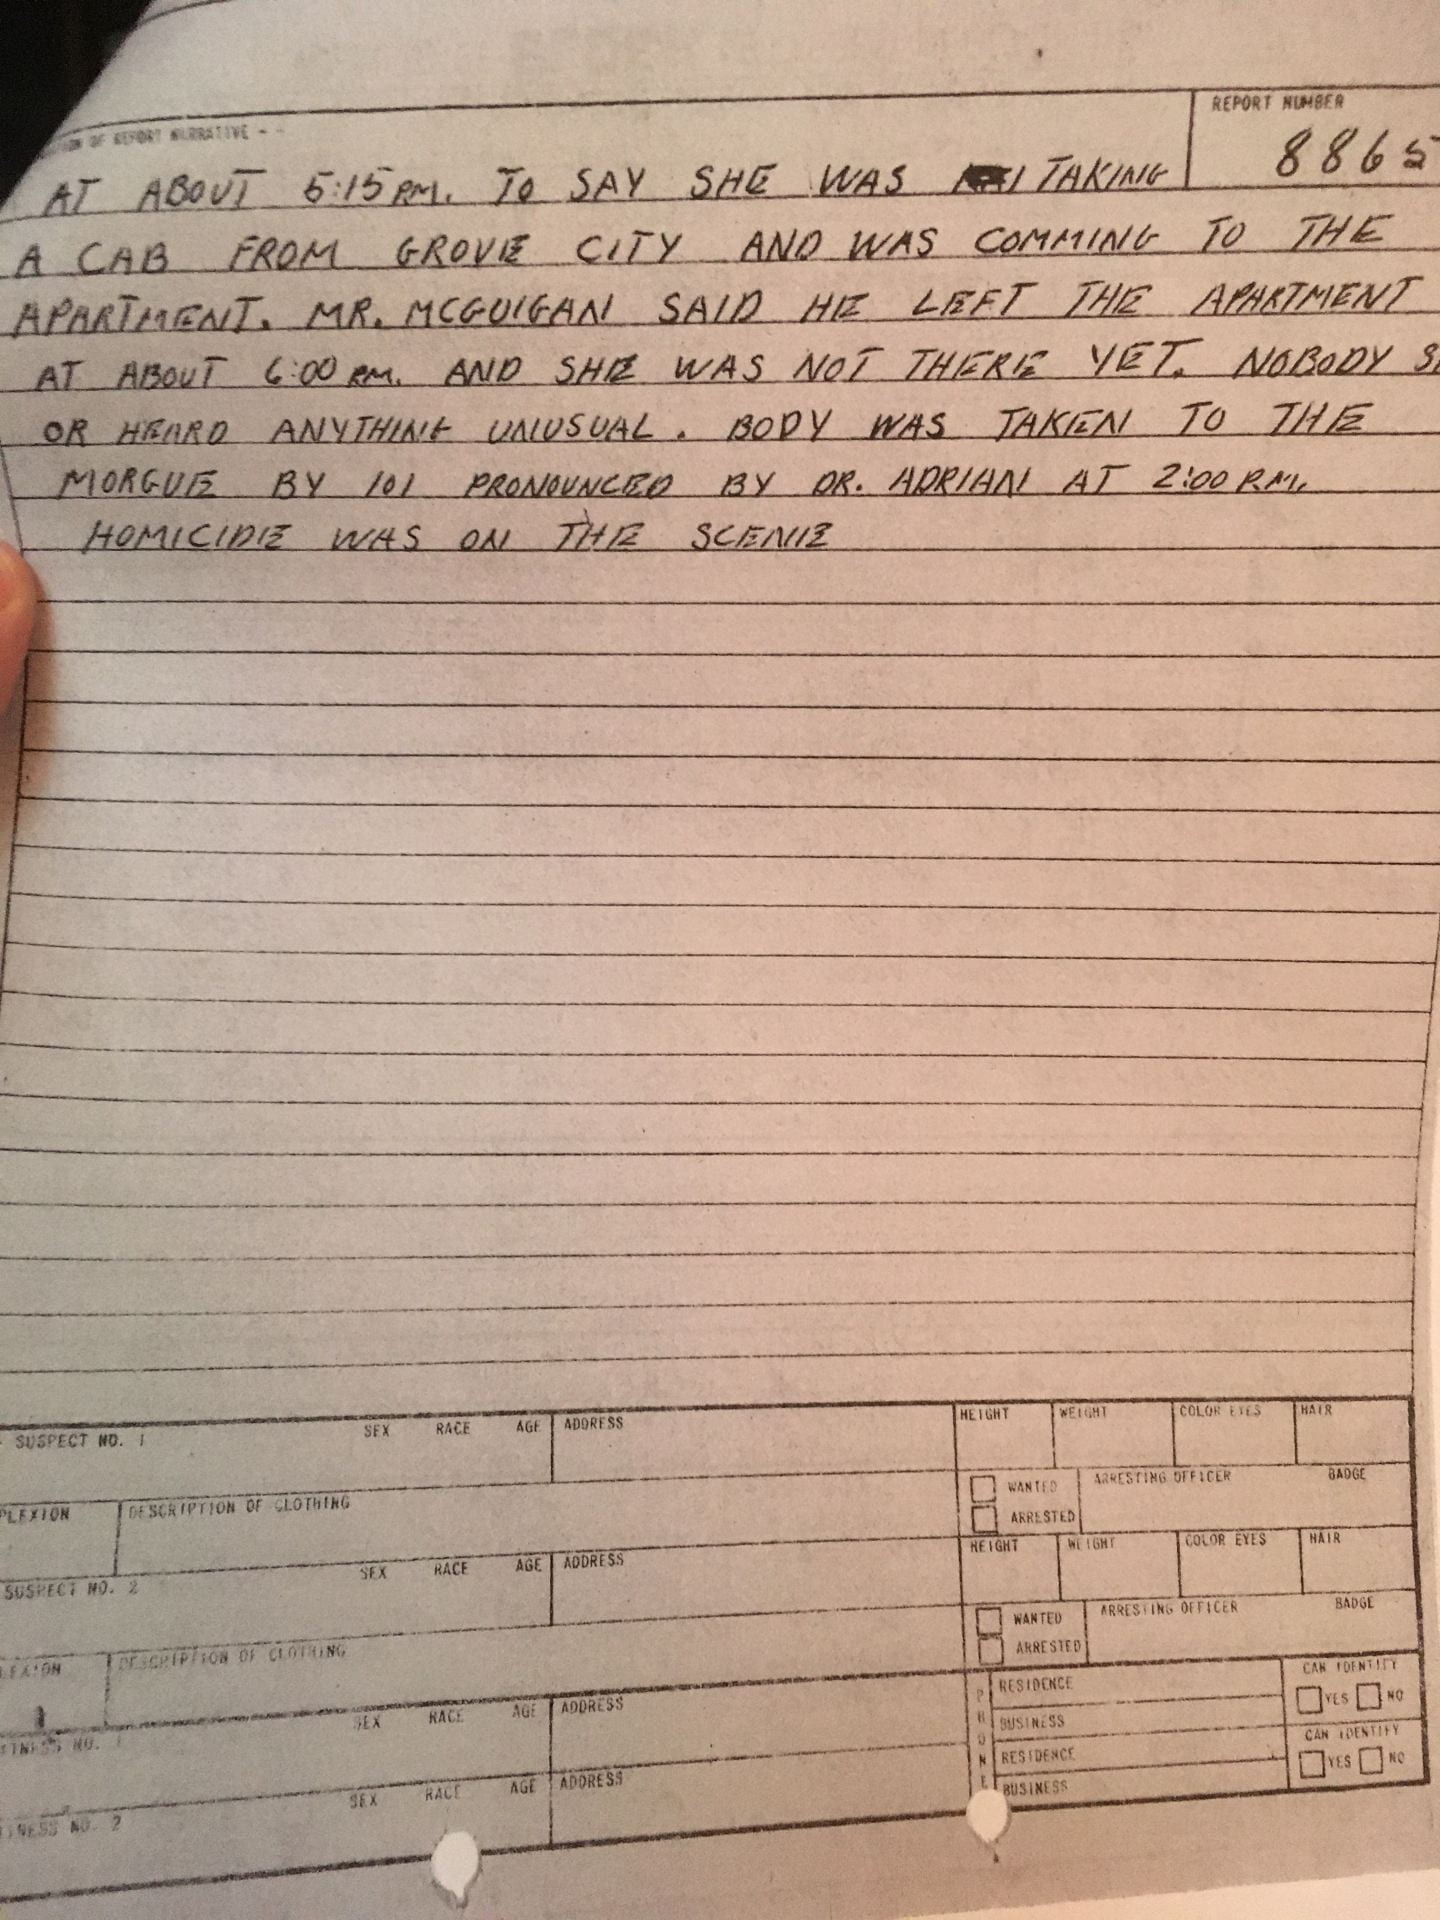 OF REPORT NARRATIVE - -
REPORT NUMBER
8865
AT ABOUT 5:15 P.M. TO SAY SHE WAS TAKING
A CAB FROM GROVE CITY AND WAS COMMING TO THE
APARTMENT. MR. MCGUIGAN SAID HE LEFT THE APARTMENT
AT ABOUT 6:00 P.M. AND SHE WAS NOT THERE YET. NOBODY
OR HEARD ANYTHING UNUSUAL. BODY WAS TAKEN TO THE
MORGUE BY 101 PRONOUNCED BY DR. ADRIAN AT 2:00 P.M.
HOMICIDE WAS ON THE SCENE
SUSPECT NO. 1 SEX RACE AGE ADDRESS HEIGHT WEIGHT COLOR EYES HAIR
PLEXION DESCRIPTION OF CLOTHING WANTED ARRESTING OFFICER BADGE
ARRESTED
SUSPECT NO. 2 SEX RACE AGE ADDRESS HEIGHT WEIGHT COLOR EYES HAIR
LEXION DESCRIPTION OF CLOTHING WANTED ARRESTING OFFICER BADGE
ARRESTED
ITNESS NO. 1 SEX RACE AGE ADDRESS PHONE RESIDENCE CAN IDENTIFY
BUSINESS YES NO
TNESS NO. 2 SEX RACE AGE ADDRESS RESIDENCE CAN IDENTIFY
BUSINESS YES NO